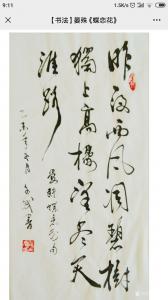 9:11
1.5K/s
【书法】晏殊《蝶恋花》
昨夜西风凋碧树
独上高楼望尽天
涯路
晏殊蝶恋花句